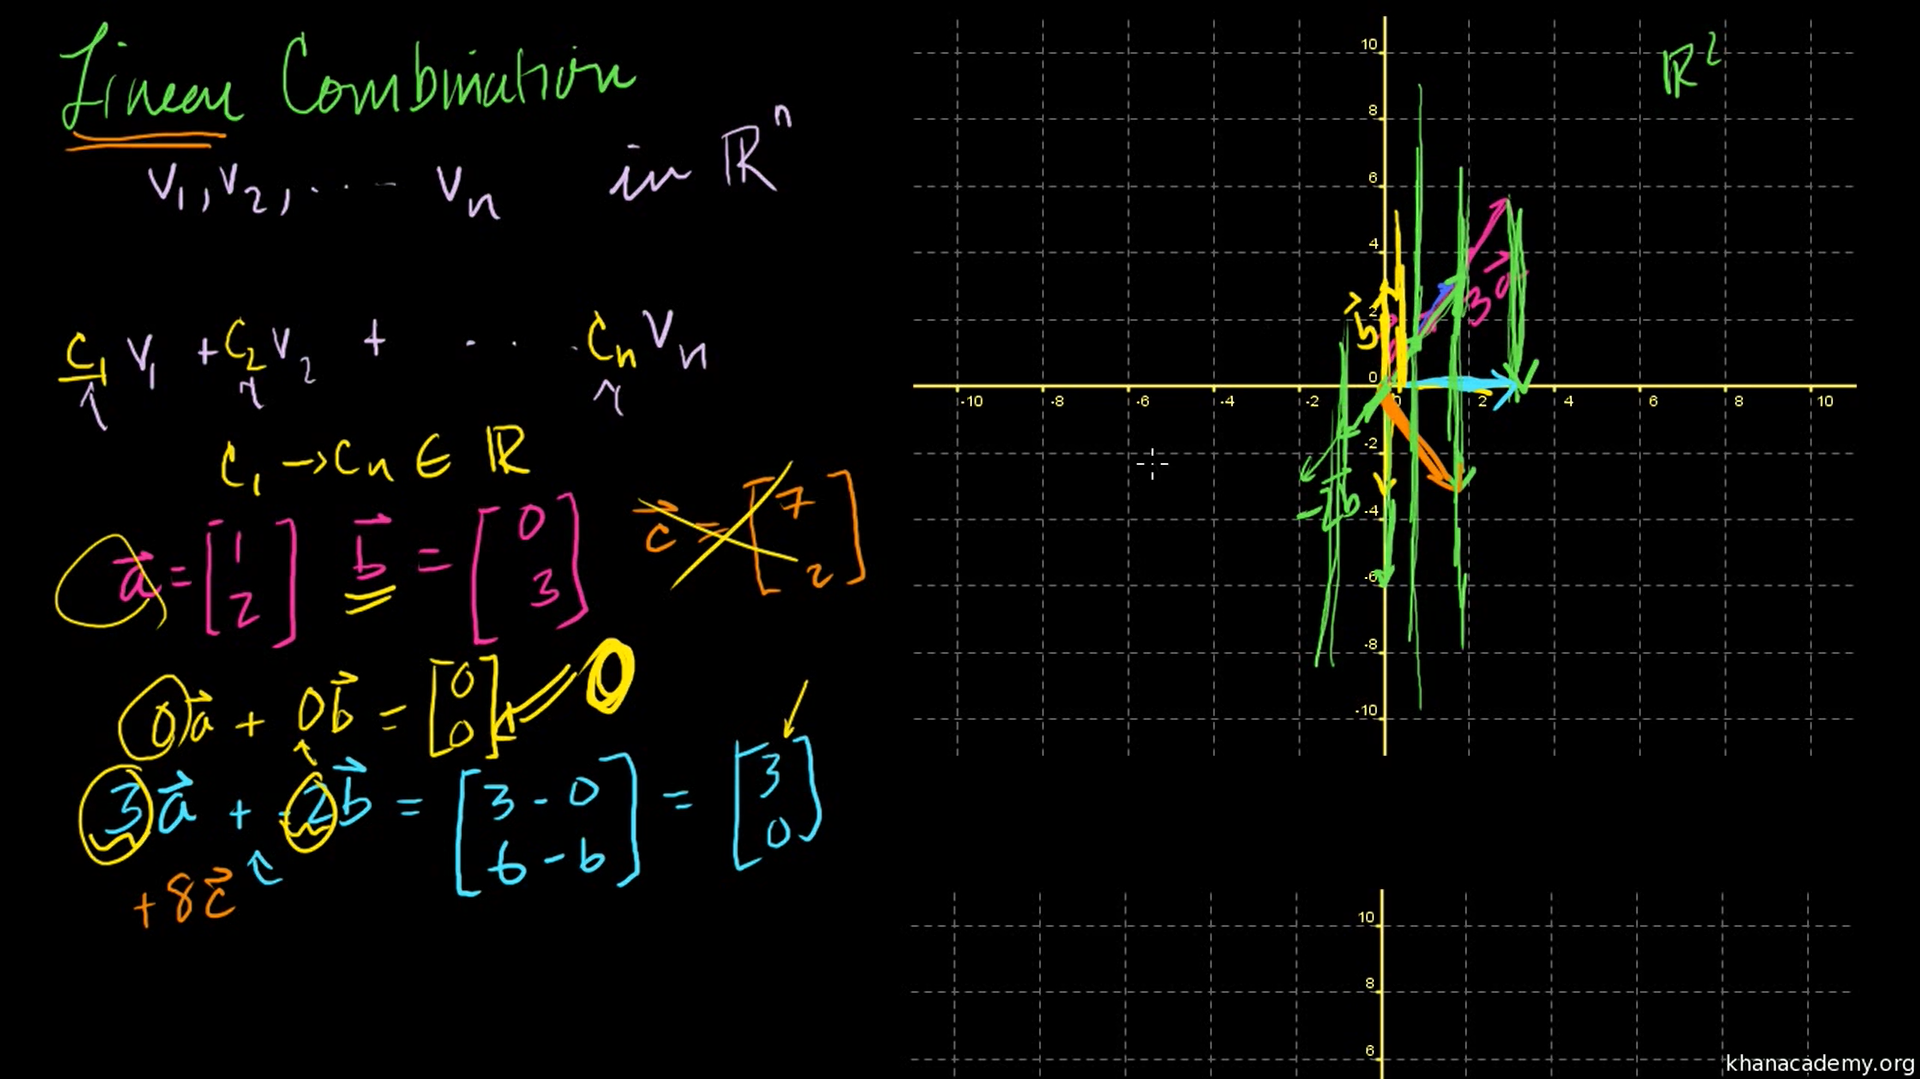 Linear Combination
v₁, v₂, ... vₙ in ℝⁿ
c₁v₁ + c₂v₂ + ... cₙvₙ
c₁ → cₙ ∈ ℝ
a⃗ = [1 2] b⃗ = [0 3] c⃗ = [7 2]
0a⃗ + 0b⃗ = [0 0] 0
3a⃗ + -2b⃗ = [3-0 6-6] = [3 0]
+8c⃗
ℝ²
10
8
6
4
2
0
-2
-4
-6
-8
-10
-10 -8 -6 -4 -2 0 2 4 6 8 10
b⃗
3a⃗
-2b⃗
10
8
6
khanacademy.org